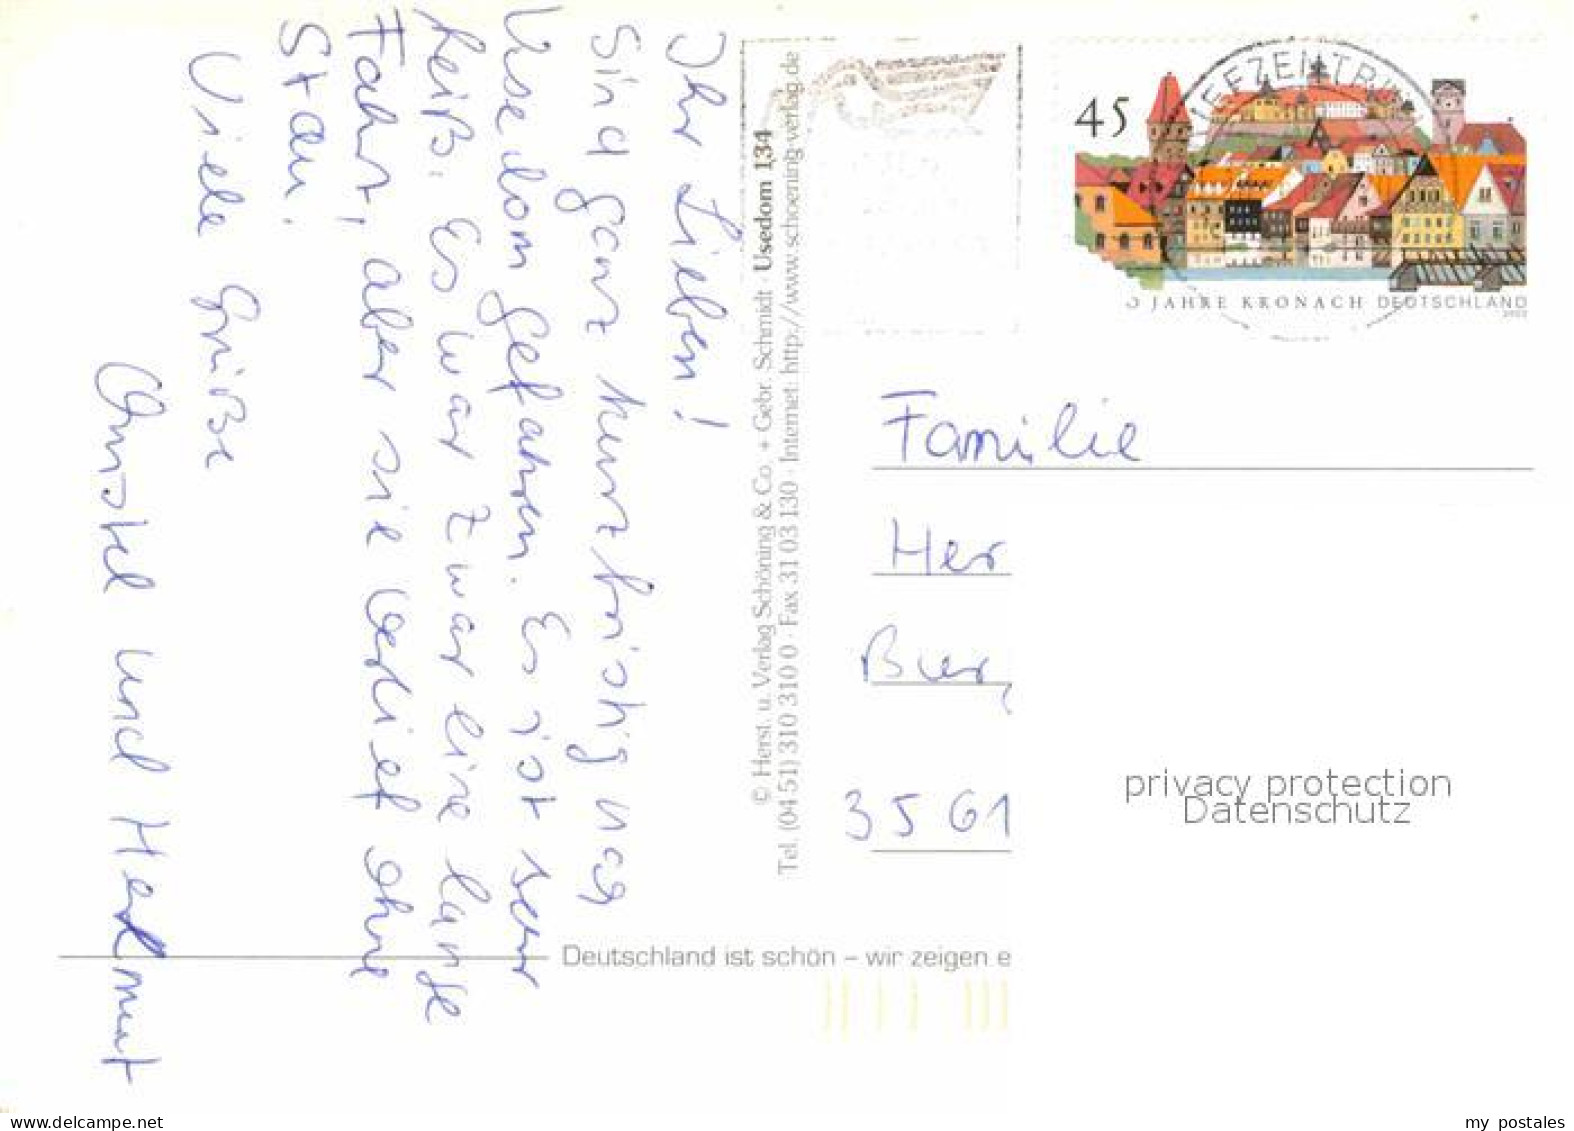 Ihr Lieben!
Sind ganz kurzfristig nach
Usedom gefahren. Es ist sehr
heiß. Es war zwar eine lange
Fahrt, aber sie verlief ohne
Stau.
Viele Grüße
Christel und Helmut
© Herst. u. Verlag Schöning & Co. + Gebr. Schmidt · Usedom 134
Tel. (04 51) 310 310 0 · Fax 31 03 130 · Internet: http://www.schoening-verlag.de
BRIEFZENTRUM
45
0 JAHRE KRONACH DEUTSCHLAND
2003
Familie
Her
Bur
3561
privacy protection
Datenschutz
Deutschland ist schön – wir zeigen e
www.delcampe.net
my_postales